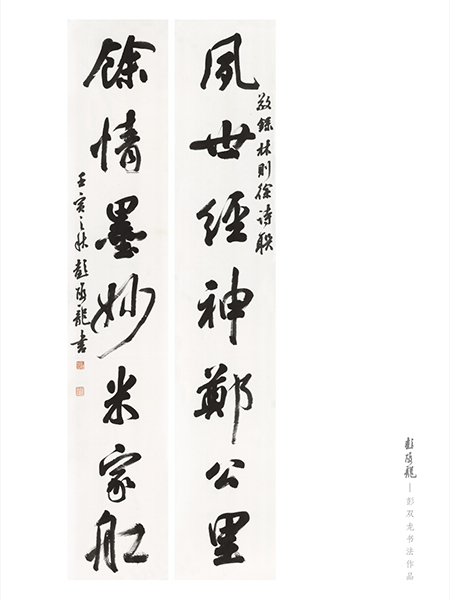 夙世經神鄭公里
敬錄林則徐詩聯
餘情墨妙米家舡
壬寅之秋彭雙龍書
彭雙龍—彭双龙书法作品